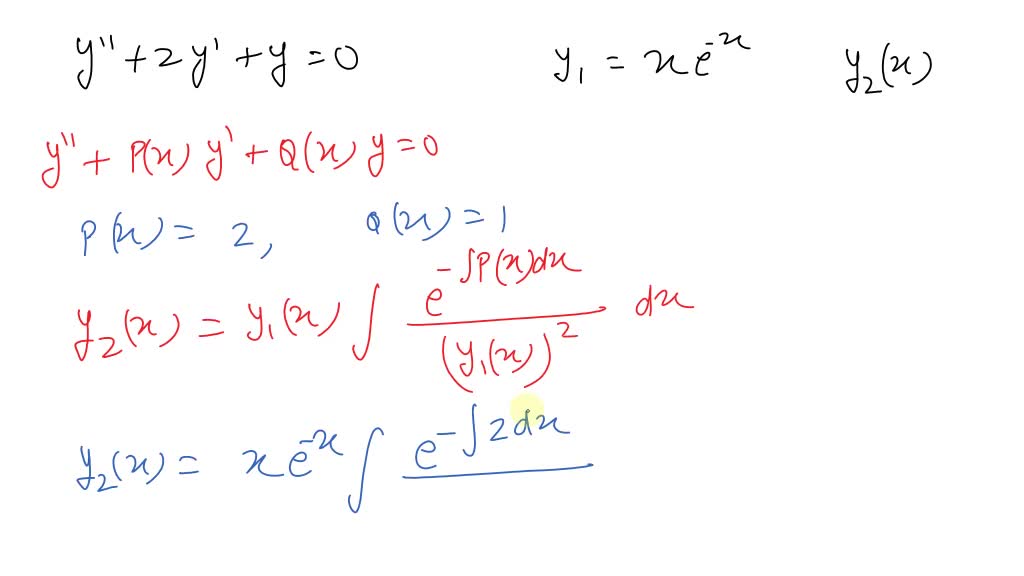 y'' + 2y' + y = 0    y₁ = xe⁻ˣ    y₂(x)
y'' + P(x) y' + Q(x) y = 0
P(x) = 2,    Q(x) = 1
y₂(x) = y₁(x) ∫ e^(-∫P(x)dx) / (y₁(x))² dx
y₂(x) = xe⁻ˣ ∫ e^(-∫2dx) /